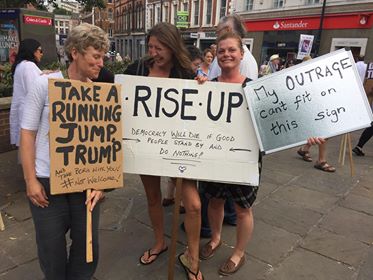 Santander
TAKE A
RUNNING
JUMP,
TRUMP
AND TAKE BORIS WITH YOU!
#Not Welcome!
·RISE·UP·
DEMOCRACY WILL DIE IF GOOD
PEOPLE STAND BY AND
DO NOTHING!!
My OUTRAGE
can't fit on
this sign